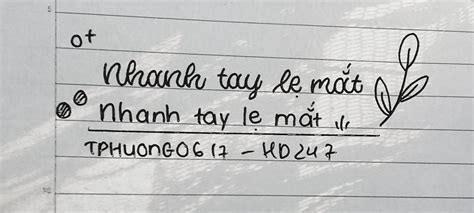 0+
Nhanh tay lẹ mắt
Nhanh tay lẹ mắt
TPHUONG0617 - HD247